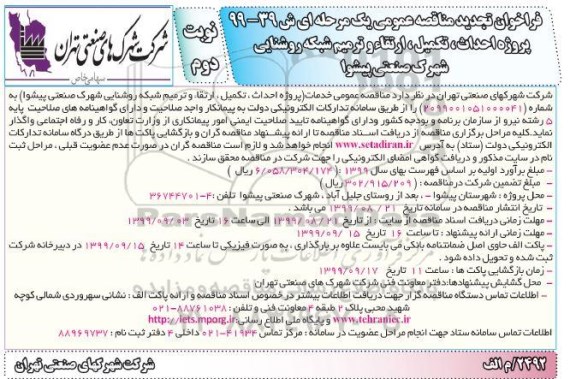 فراخوان تجدید مناقصه عمومی یک مرحله ای ش ۳۹-۹۹
پروژه احداث، تکمیل، ارتقاء و ترمیم شبکه روشنایی
شهرک صنعتی پیشوا
نوبت دوم
شرکت شهرکهای صنعتی تهران
سهامی خاص
شرکت شهرکهای صنعتی تهران در نظر دارد مناقصه عمومی خدمات(پروژه احداث ، تکمیل ، ارتقا، و ترمیم شبکه روشنایی شهرک صنعتی پیشوا) به
شماره (۲۰۹۹۰۰۱۰۵۱۰۰۰۰۴۱) را از طریق سامانه تدارکات الکترونیکی دولت به پیمانکار واجد صلاحیت و دارای گواهینامه های صلاحیت پایه
۵ رشته نیرو از سازمان برنامه و بودجه کشور ودارای گواهینامه تایید صلاحیت ایمنی امور پیمانکاری از وزارت تعاون، کار و رفاه اجتماعی واگذار
نماید.کلیه مراحل برگزاری مناقصه از دریافت اسناد مناقصه تا ارائه پیشنهاد مناقصه گران و بازگشایی پاکت ها از طریق درگاه سامانه تدارکات
الکترونیکی دولت (ستاد) به آدرس www.setadiran.ir انجام خواهد شد و لازم است مناقصه گران در صورت عدم عضویت قبلی ، مراحل ثبت
نام در سایت مذکور و دریافت گواهی امضای الکترونیکی را جهت شرکت در مناقصه محقق سازند .
- مبلغ برآورد اولیه بر اساس فهرست بهای سال ۱۳۹۹ : (۶/۰۵۸/۳۰۴/۱۷۴ ریال )
- مبلغ تضمین شرکت در مناقصه: (۳۰۲/۹۱۵/۲۰۹ ریال )
- محل پروژه : شهرستان پیشوا - ، بعد از روستای جلیل آباد ، شهرک صنعتی پیشوا تلفن :۴-۳۶۷۴۴۷۰۱
- تاریخ انتشار مناقصه در سامانه تاریخ ۱۳۹۹/۰۸/۲۱ می باشد .
- مهلت زمانی دریافت اسناد مناقصه از سایت : از تاریخ ۱۳۹۹/۰۸/۲۱ الی ساعت ۱۶ تاریخ ۱۳۹۹/۰۹/۰۳
- مهلت زمانی ارائه پیشنهاد : تا ساعت ۱۶ تاریخ ۱۳۹۹/۰۹/۱۵
- پاکت الف حاوی اصل ضمانتنامه بانکی می بایست علاوه بر بارگذاری ، به صورت فیزیکی تا ساعت ۱۴ تاریخ ۱۳۹۹/۰۹/۱۵ در دبیرخانه شرکت
ثبت شده و تحویل داده شود .
- زمان بازگشایی پاکت ها : ساعت ۱۱ تاریخ ۱۳۹۹/۰۹/۱۷
- محل گشایش پیشنهادها: دفتر معاونت فنی شرکت شهرک های صنعتی تهران
- اطلاعات تماس دستگاه مناقصه گزار جهت دریافت اطلاعات بیشتر در خصوص اسناد مناقصه و ارائه پاکت الف : نشانی سهروردی شمالی کوچه
شهید محبی پلاک ۲ طبقه ۴ معاونت فنی و تلفن : ۸۸۷۶۱۰۳۸-۰۲۱
www.tehraniec.ir و پایگاه ملی اطلاع رسانی http://iets.mporg.ir
اطلاعات تماس سامانه ستاد جهت انجام مراحل عضویت در سامانه : مرکز تماس ۴۱۹۳۴-۰۲۱ داخلی ۴ دفتر ثبت نام : ۸۸۹۶۹۷۳۷
۲۴۹۲/م الف
شرکت شهرکهای صنعتی تهران